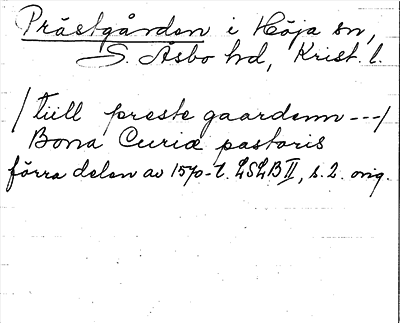 Prästgården i Höja sn,
S. Åsbo hd, Krist. l.
/tiill preste gaardenn ---/
Bona Curiæ pastoris
förra delen av 1570-t. LSLB II, s. 2. orig.